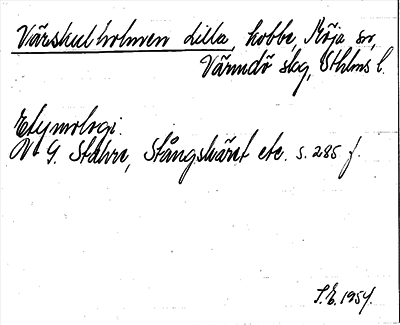 Vårskulholmen Lilla, kobbe, Möja sn,
Värmdö skg, Sthlms l.
Etymologi.
N. G. Stahre, Stångskäret etc. s. 285 f.
S.E. 1954.